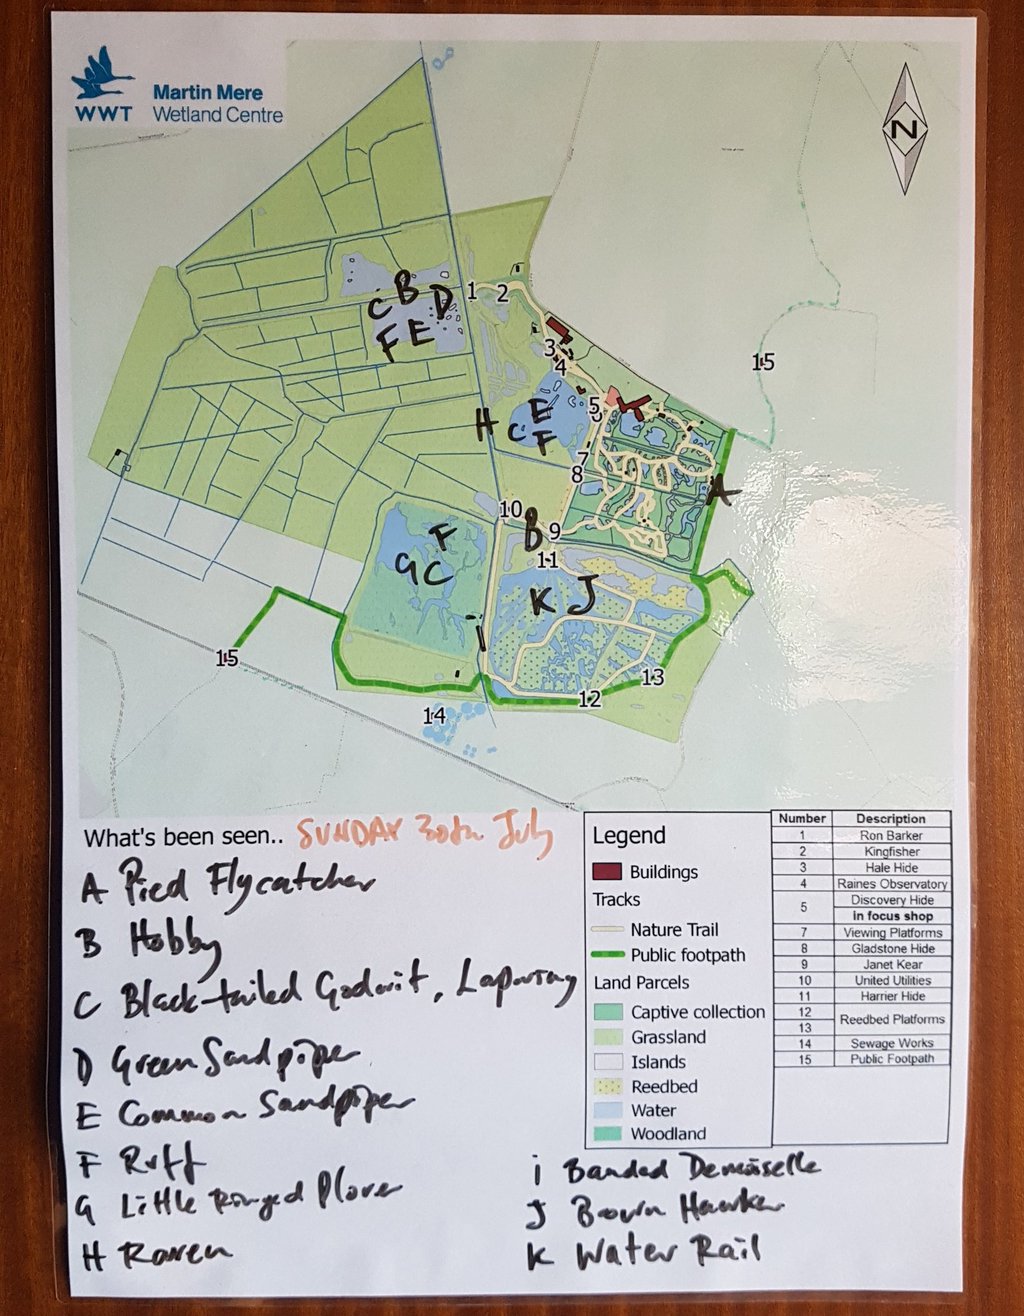 WWT
Martin Mere
Wetland Centre
N
1
2
C B D
F E
3
4
15
5
E
H C F
7
8
A
10
B 9
F
11
G C
K J
I
15
13
12
14
What's been seen.. SUNDAY 30th July
A Pied Flycatcher
B Hobby
C Black-tailed Godwit, Lapwing
D Green Sandpiper
E Common Sandpiper
F Ruff
G Little Ringed Plover
H Raven
i Banded Demoiselle
J Brown Hawker
K Water Rail
Legend
Buildings
Tracks
Nature Trail
Public footpath
Land Parcels
Captive collection
Grassland
Islands
Reedbed
Water
Woodland
Number Description
1 Ron Barker
2 Kingfisher
3 Hale Hide
4 Raines Observatory
5 Discovery Hide
in focus shop
7 Viewing Platforms
8 Gladstone Hide
9 Janet Kear
10 United Utilities
11 Harrier Hide
12
13 Reedbed Platforms
14 Sewage Works
15 Public Footpath